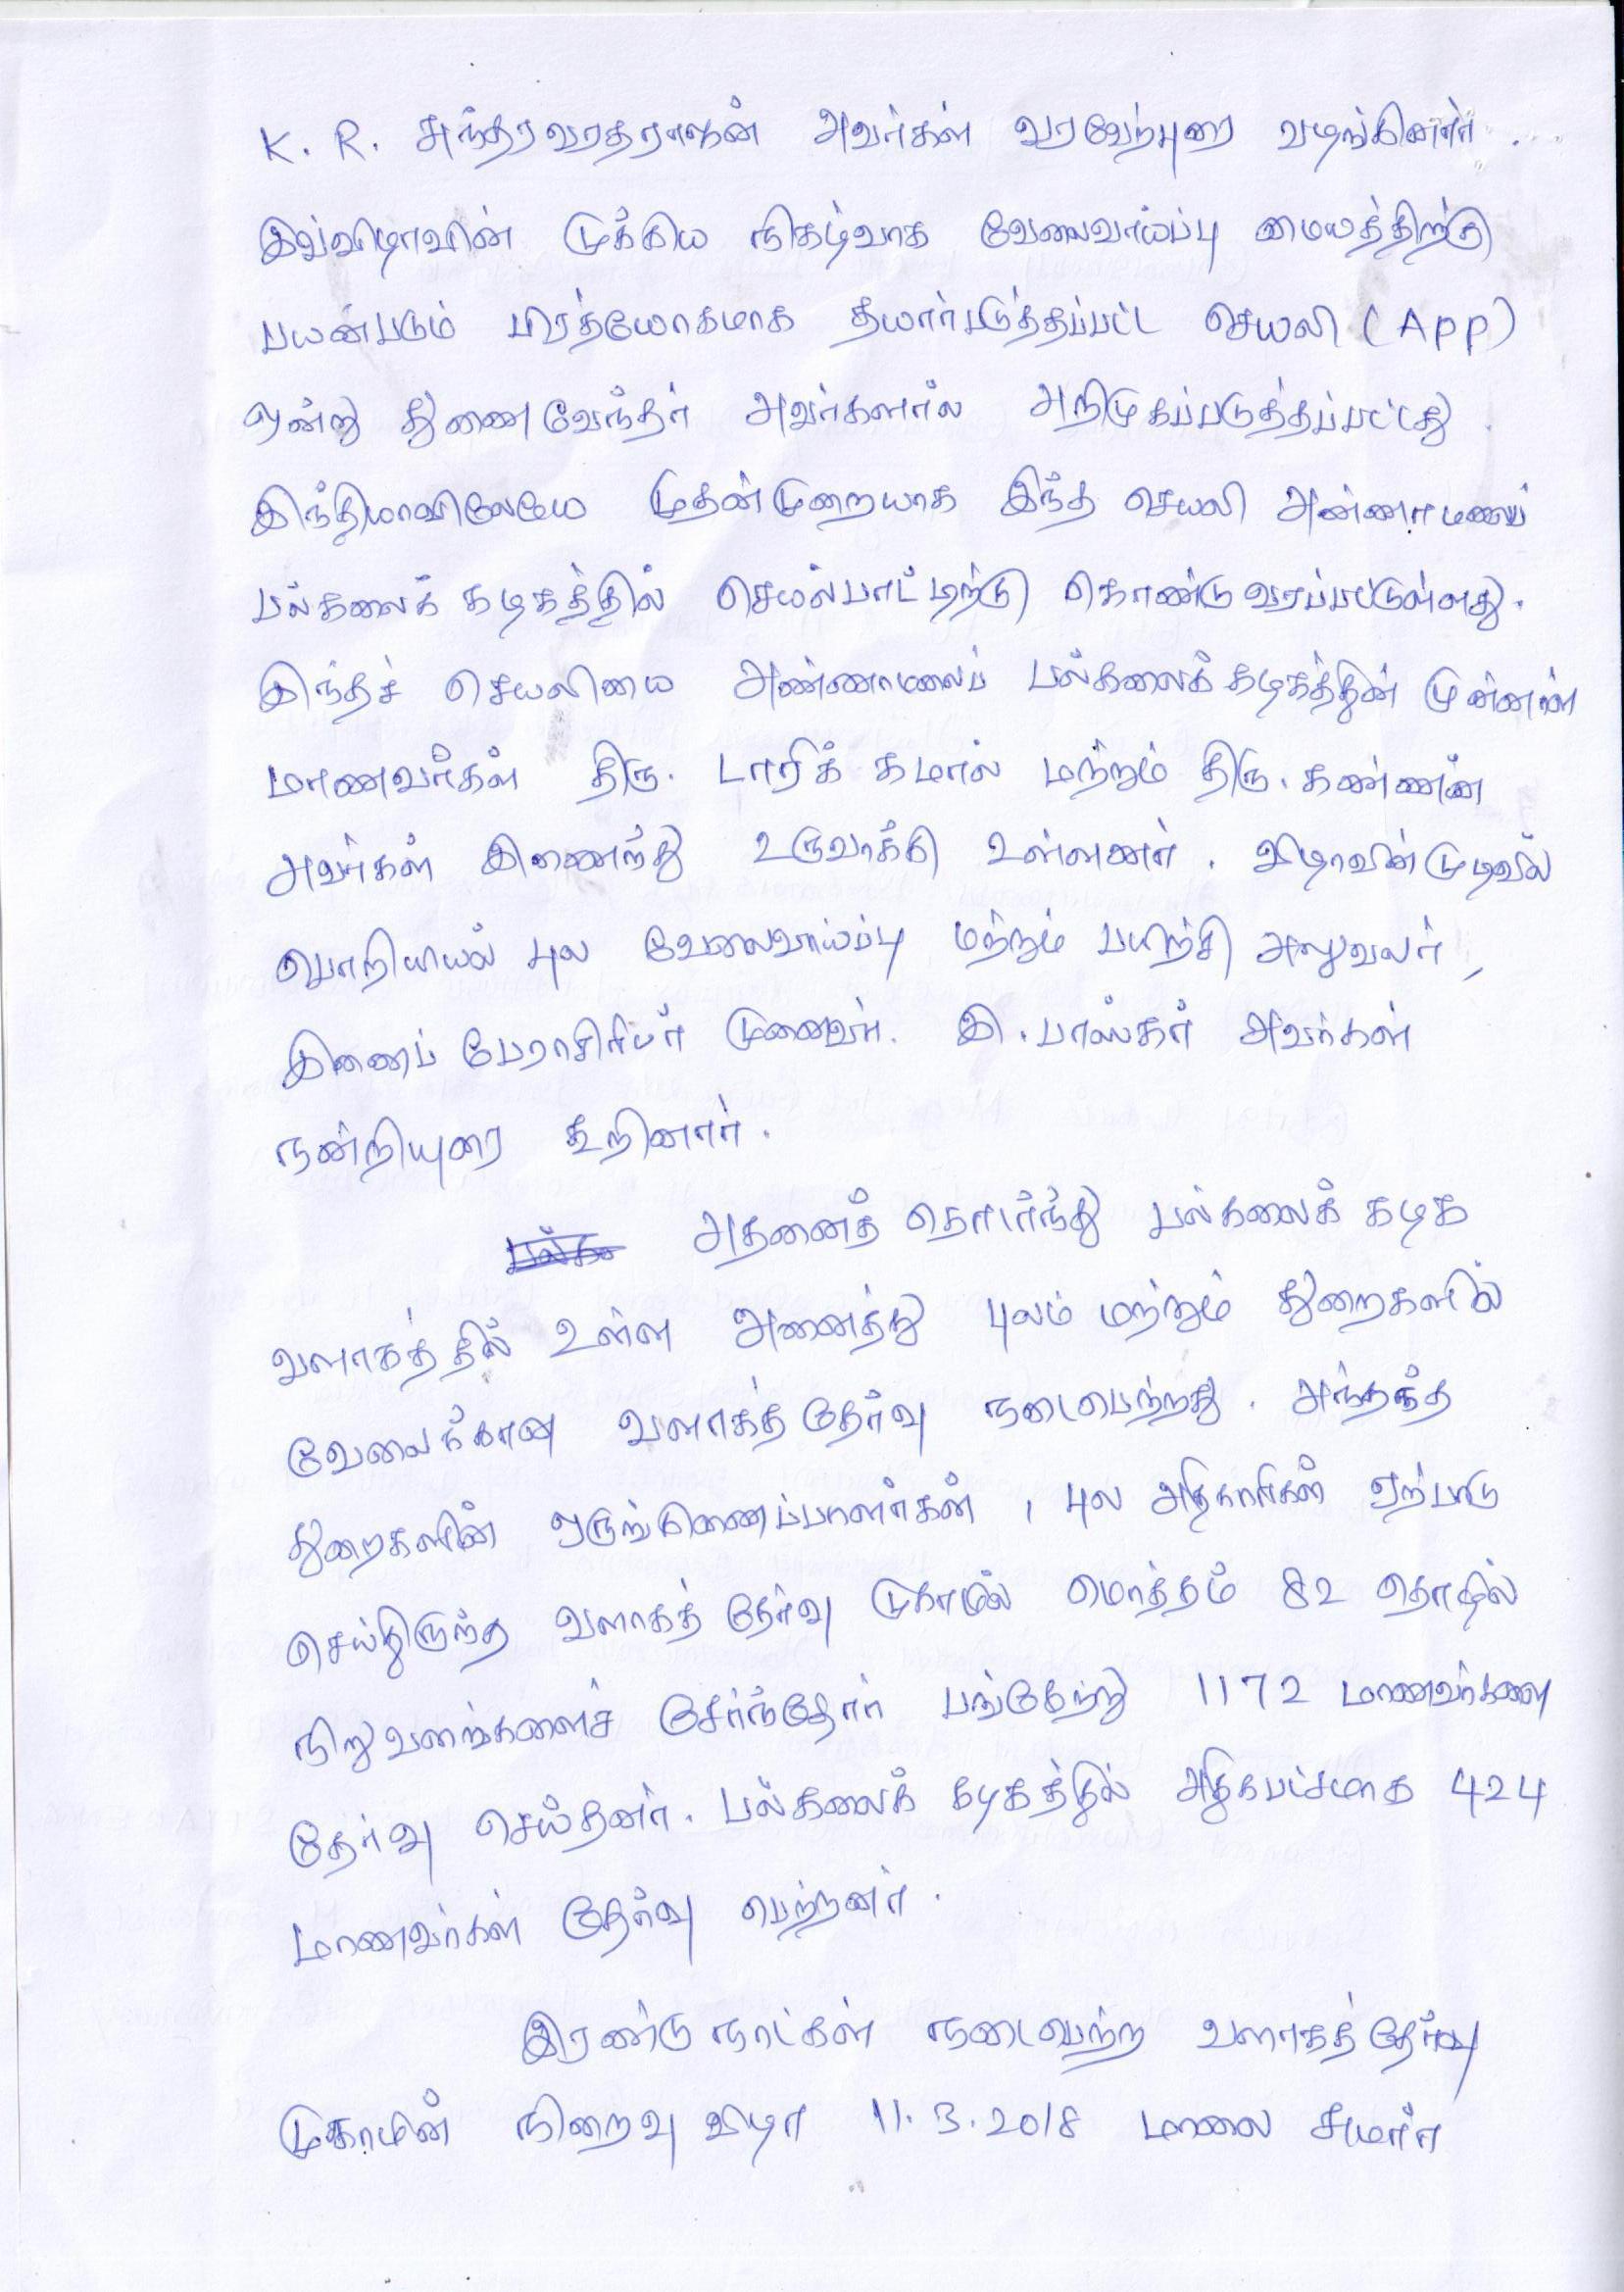 K. R. சுந்தரவரதராஜன் அவர்கள் வரவேற்புரை வழங்கினார்.
இவ்விழாவின் முக்கிய நிகழ்வாக வேலைவாய்ப்பு மையத்திற்கு
பயன்படும் பிரத்யோகமாக தயார்படுத்தப்பட்ட செயலி (App)
ஒன்று துணைவேந்தர் அவர்களால் அறிமுகப்படுத்தப்பட்டது.
இந்தியாவிலேயே முதன்முறையாக இந்த செயலி அண்ணாமலைப்
பல்கலைக் கழகத்தில் செயல்பாட்டிற்கு கொண்டு வரப்பட்டுள்ளது.
இந்தச் செயலியை அண்ணாமலைப் பல்கலைக் கழகத்தின் முன்னாள்
மாணவர்கள் திரு. டாரிக் கமால் மற்றும் திரு. கண்ணன்
அவர்கள் இணைந்து உருவாக்கி உள்ளனர். விழாவின் முடிவில்
பொறியியல் புல வேலைவாய்ப்பு மற்றும் பயிற்சி அலுவலர்,
இணைப் பேராசிரியர் முனைவர். இ. பாஸ்கர் அவர்கள்
நன்றியுரை கூறினார்.
அதனைத் தொடர்ந்து பல்கலைக் கழக
வளாகத்தில் உள்ள அனைத்து புலம் மற்றும் துறைகளில்
வேலைக்கான வளாகத் தேர்வு நடைபெற்றது. அந்தந்த
துறைகளின் ஒருங்கிணைப்பாளர்கள், புல அதிகாரிகள் ஏற்பாடு
செய்திருந்த வளாகத் தேர்வு முகாமில் மொத்தம் 82 தொழில்
நிறுவனங்களைச் சேர்ந்தோர் பங்கேற்று 1172 மாணவர்களை
தேர்வு செய்தனர். பல்கலைக் கழகத்தில் அதிகபட்சமாக 424
மாணவர்கள் தேர்வு பெற்றனர்.
இரண்டு நாட்கள் நடைபெற்ற வளாகத் தேர்வு
முகாமின் நிறைவு விழா 11.3.2018 மாலை சுமார்